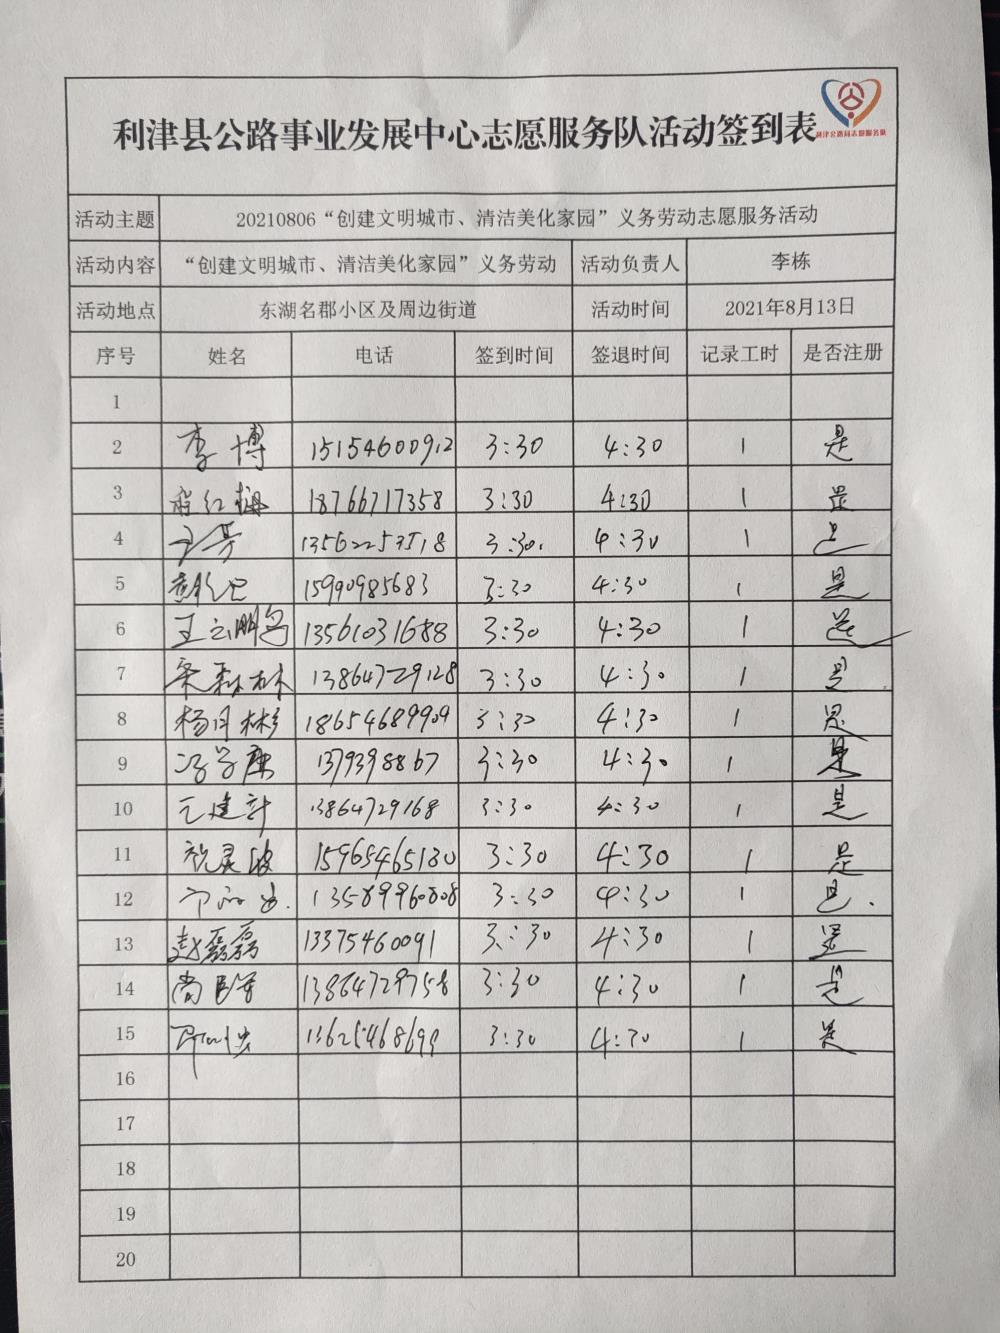 利津县公路事业发展中心志愿服务队活动签到表
利津公路局志愿服务队
活动主题 20210806“创建文明城市、清洁美化家园”义务劳动志愿服务活动
活动内容 “创建文明城市、清洁美化家园”义务劳动 活动负责人 李栋
活动地点 东湖名郡小区及周边街道 活动时间 2021年8月13日
序号 姓名 电话 签到时间 签退时间 记录工时 是否注册
1
2 李博 15154600912 3:30 4:30 1 是
3 程红梅 18766717358 3:30 4:30 1 是
4 3:30. 4:30 1 是
5 15990985683 3:30 4:30 1 是
6 王云鹏 13561031688 3:30 4:30 1 是
7 森林 13864729128 3:30 4:30 1 是
8 杨月彬 18654689909 3:30 4:30 1 是
9 冯学康 13793988867 3:30 4:30 1 是
10 王建新 13864729168 3:30 4:30 1 是
11 灵波 15965465130 3:30 4:30 1 是
12 13589960808 3:30 4:30 1 是.
13 赵磊磊 13375460091 3:30 4:30 1 是
14 尚 13864729758 3:30 4:30 1 是
15 13625468699 3:30 4:30 1 是
16
17
18
19
20